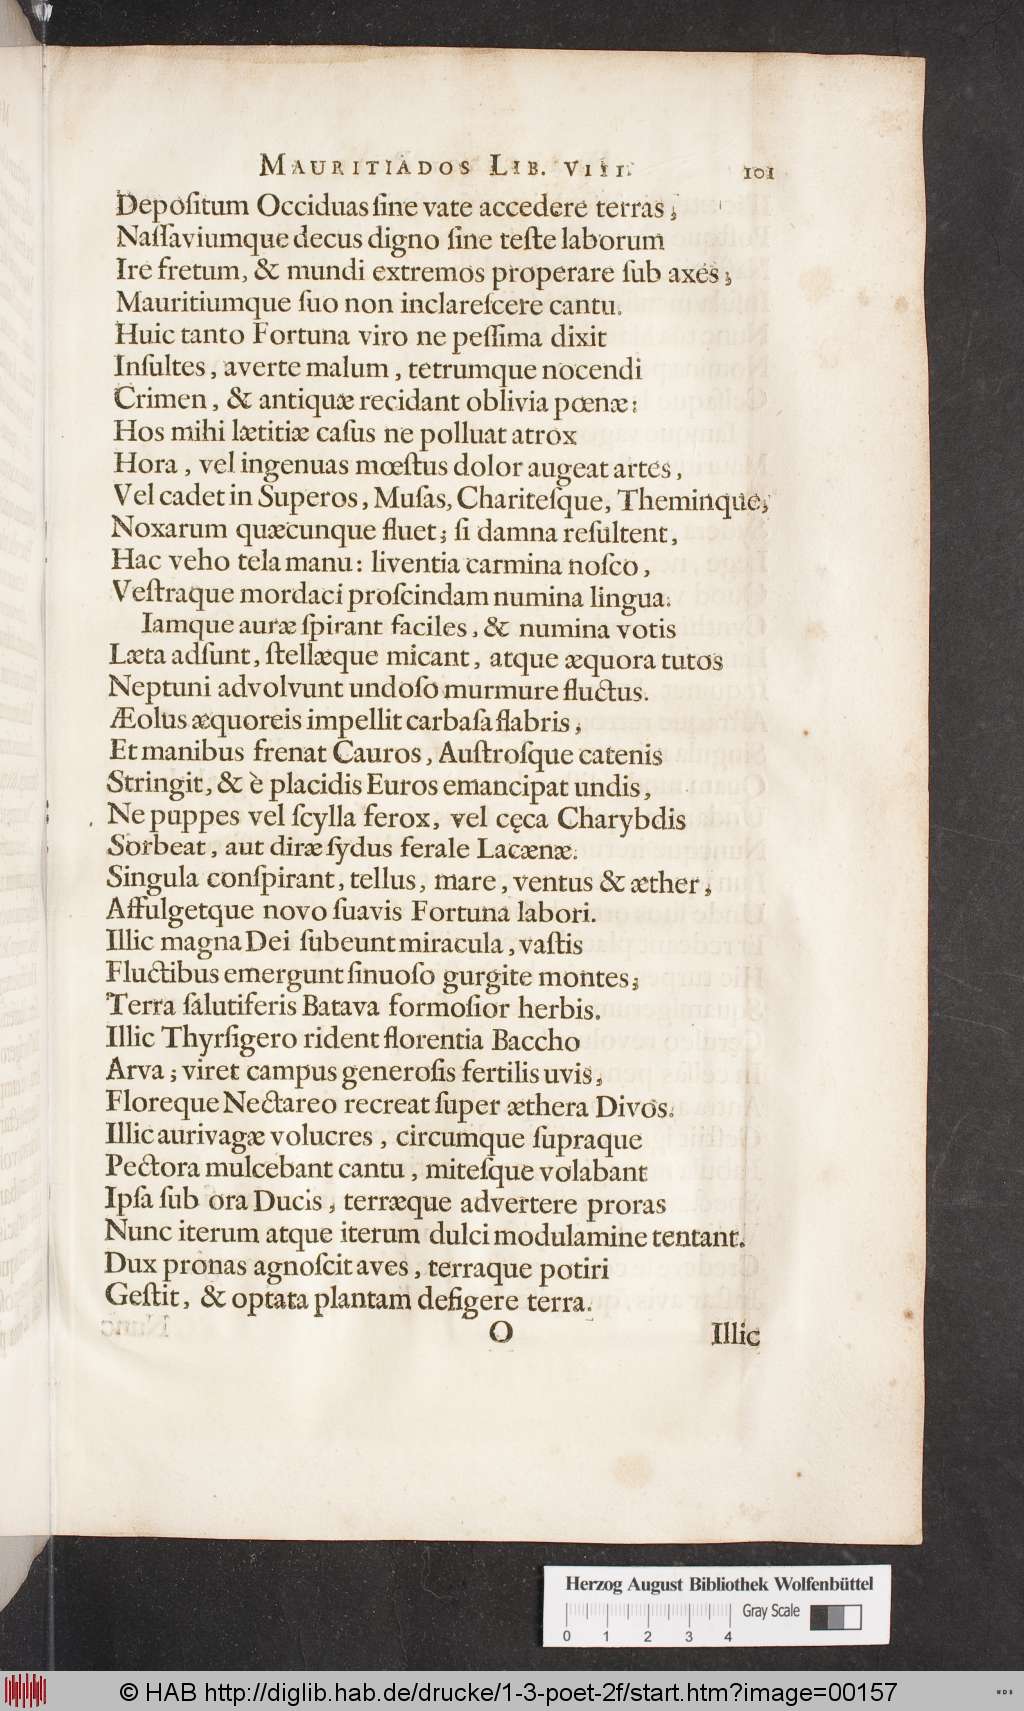 MAURITIADOS LIB. VIII. 101
Depoſitum Occiduas ſine vate accedere terras;
Naſſaviumque decus digno ſine teſte laborum
Ire fretum, & mundi extremos properare ſub axes;
Mauritiumque ſuo non inclareſcere cantu.
Huic tanto Fortuna viro ne peſſima dixit
Inſultes, averte malum, tetrumque nocendi
Crimen, & antiquæ recidant oblivia pœnæ:
Hos mihi lætitiæ caſus ne polluat atrox
Hora, vel ingenuas mœſtus dolor augeat artes,
Vel cadet in Superos, Muſas, Chariteſque, Theminque,
Noxarum quæcunque fluet; ſi damna reſultent,
Hac veho tela manu: liventia carmina noſco,
Veſtraque mordaci proſcindam numina lingua.
Iamque auræ ſpirant faciles, & numina votis
Læta adſunt, ſtellæque micant, atque æquora tutos
Neptuni advolvunt undoſo murmure fluctus.
Æolus æquoreis impellit carbaſa flabris,
Et manibus frenat Cauros, Auſtroſque catenis
Stringit, & è placidis Euros emancipat undis,
Ne puppes vel ſcylla ferox, vel cęca Charybdis
Sorbeat, aut diræ ſydus ferale Lacænæ.
Singula conſpirant, tellus, mare, ventus & æther,
Affulgetque novo ſuavis Fortuna labori.
Illic magna Dei ſubeunt miracula, vaſtis
Fluctibus emergunt ſinuoſo gurgite montes;
Terra ſalutiferis Batava formoſior herbis.
Illic Thyrſigero rident florentia Baccho
Arva; viret campus generoſis fertilis uvis,
Floreque Nectareo recreat ſuper æthera Divos.
Illic aurivagæ volucres, circumque ſupraque
Pectora mulcebant cantu, miteſque volabant
Ipſa ſub ora Ducis, terræque advertere proras
Nunc iterum atque iterum dulci modulamine tentant.
Dux pronas agnoſcit aves, terraque potiri
Geſtit, & optata plantam defigere terra.
O Illic
Herzog August Bibliothek Wolfenbüttel
Gray Scale
0 1 2 3 4
© HAB http://diglib.hab.de/drucke/1-3-poet-2f/start.htm?image=00157
WDB